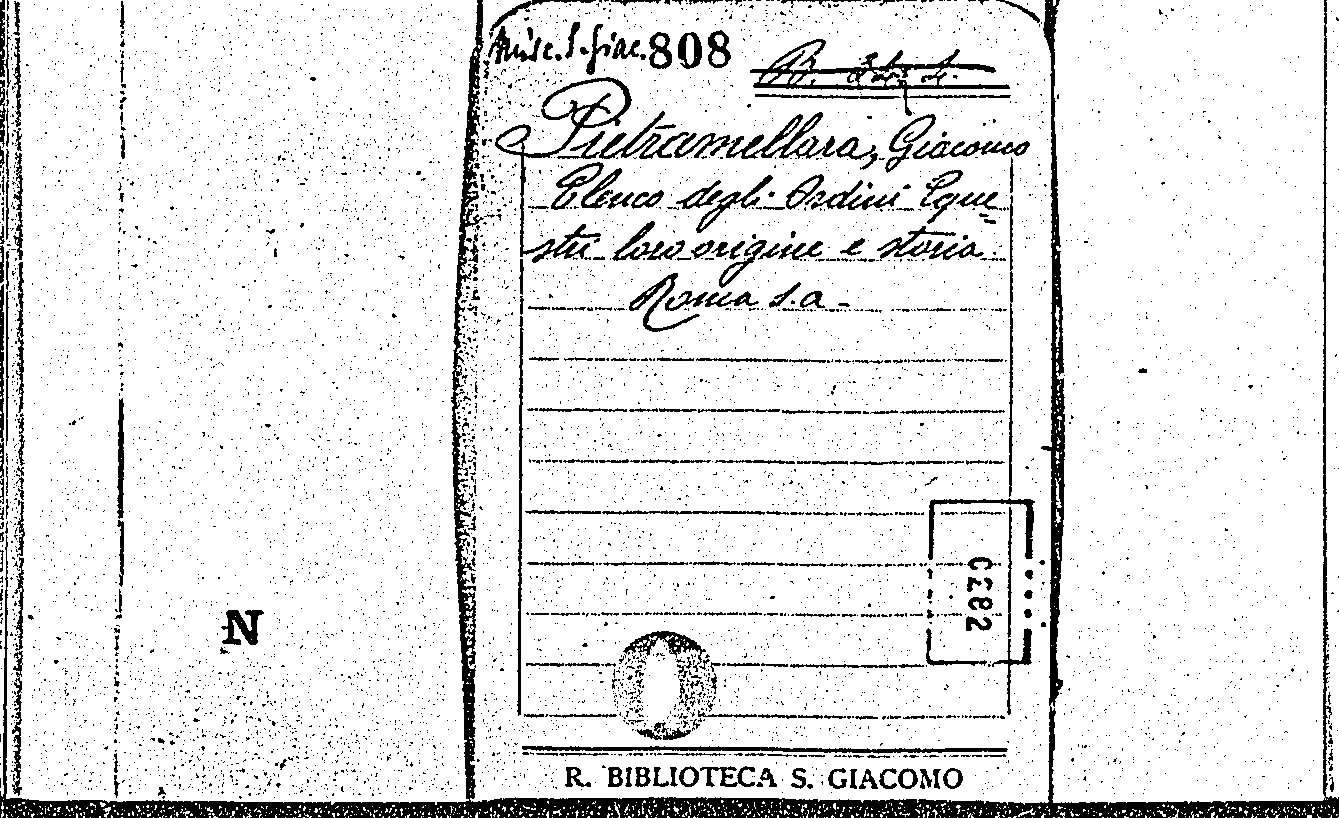 Misc. S. Giac. 808
B.
Pietramellara, Giacomo
Elenco degli Ordini Eque
stri loro origine e storia
Roma s.a -
0282
N
R. BIBLIOTECA S. GIACOMO